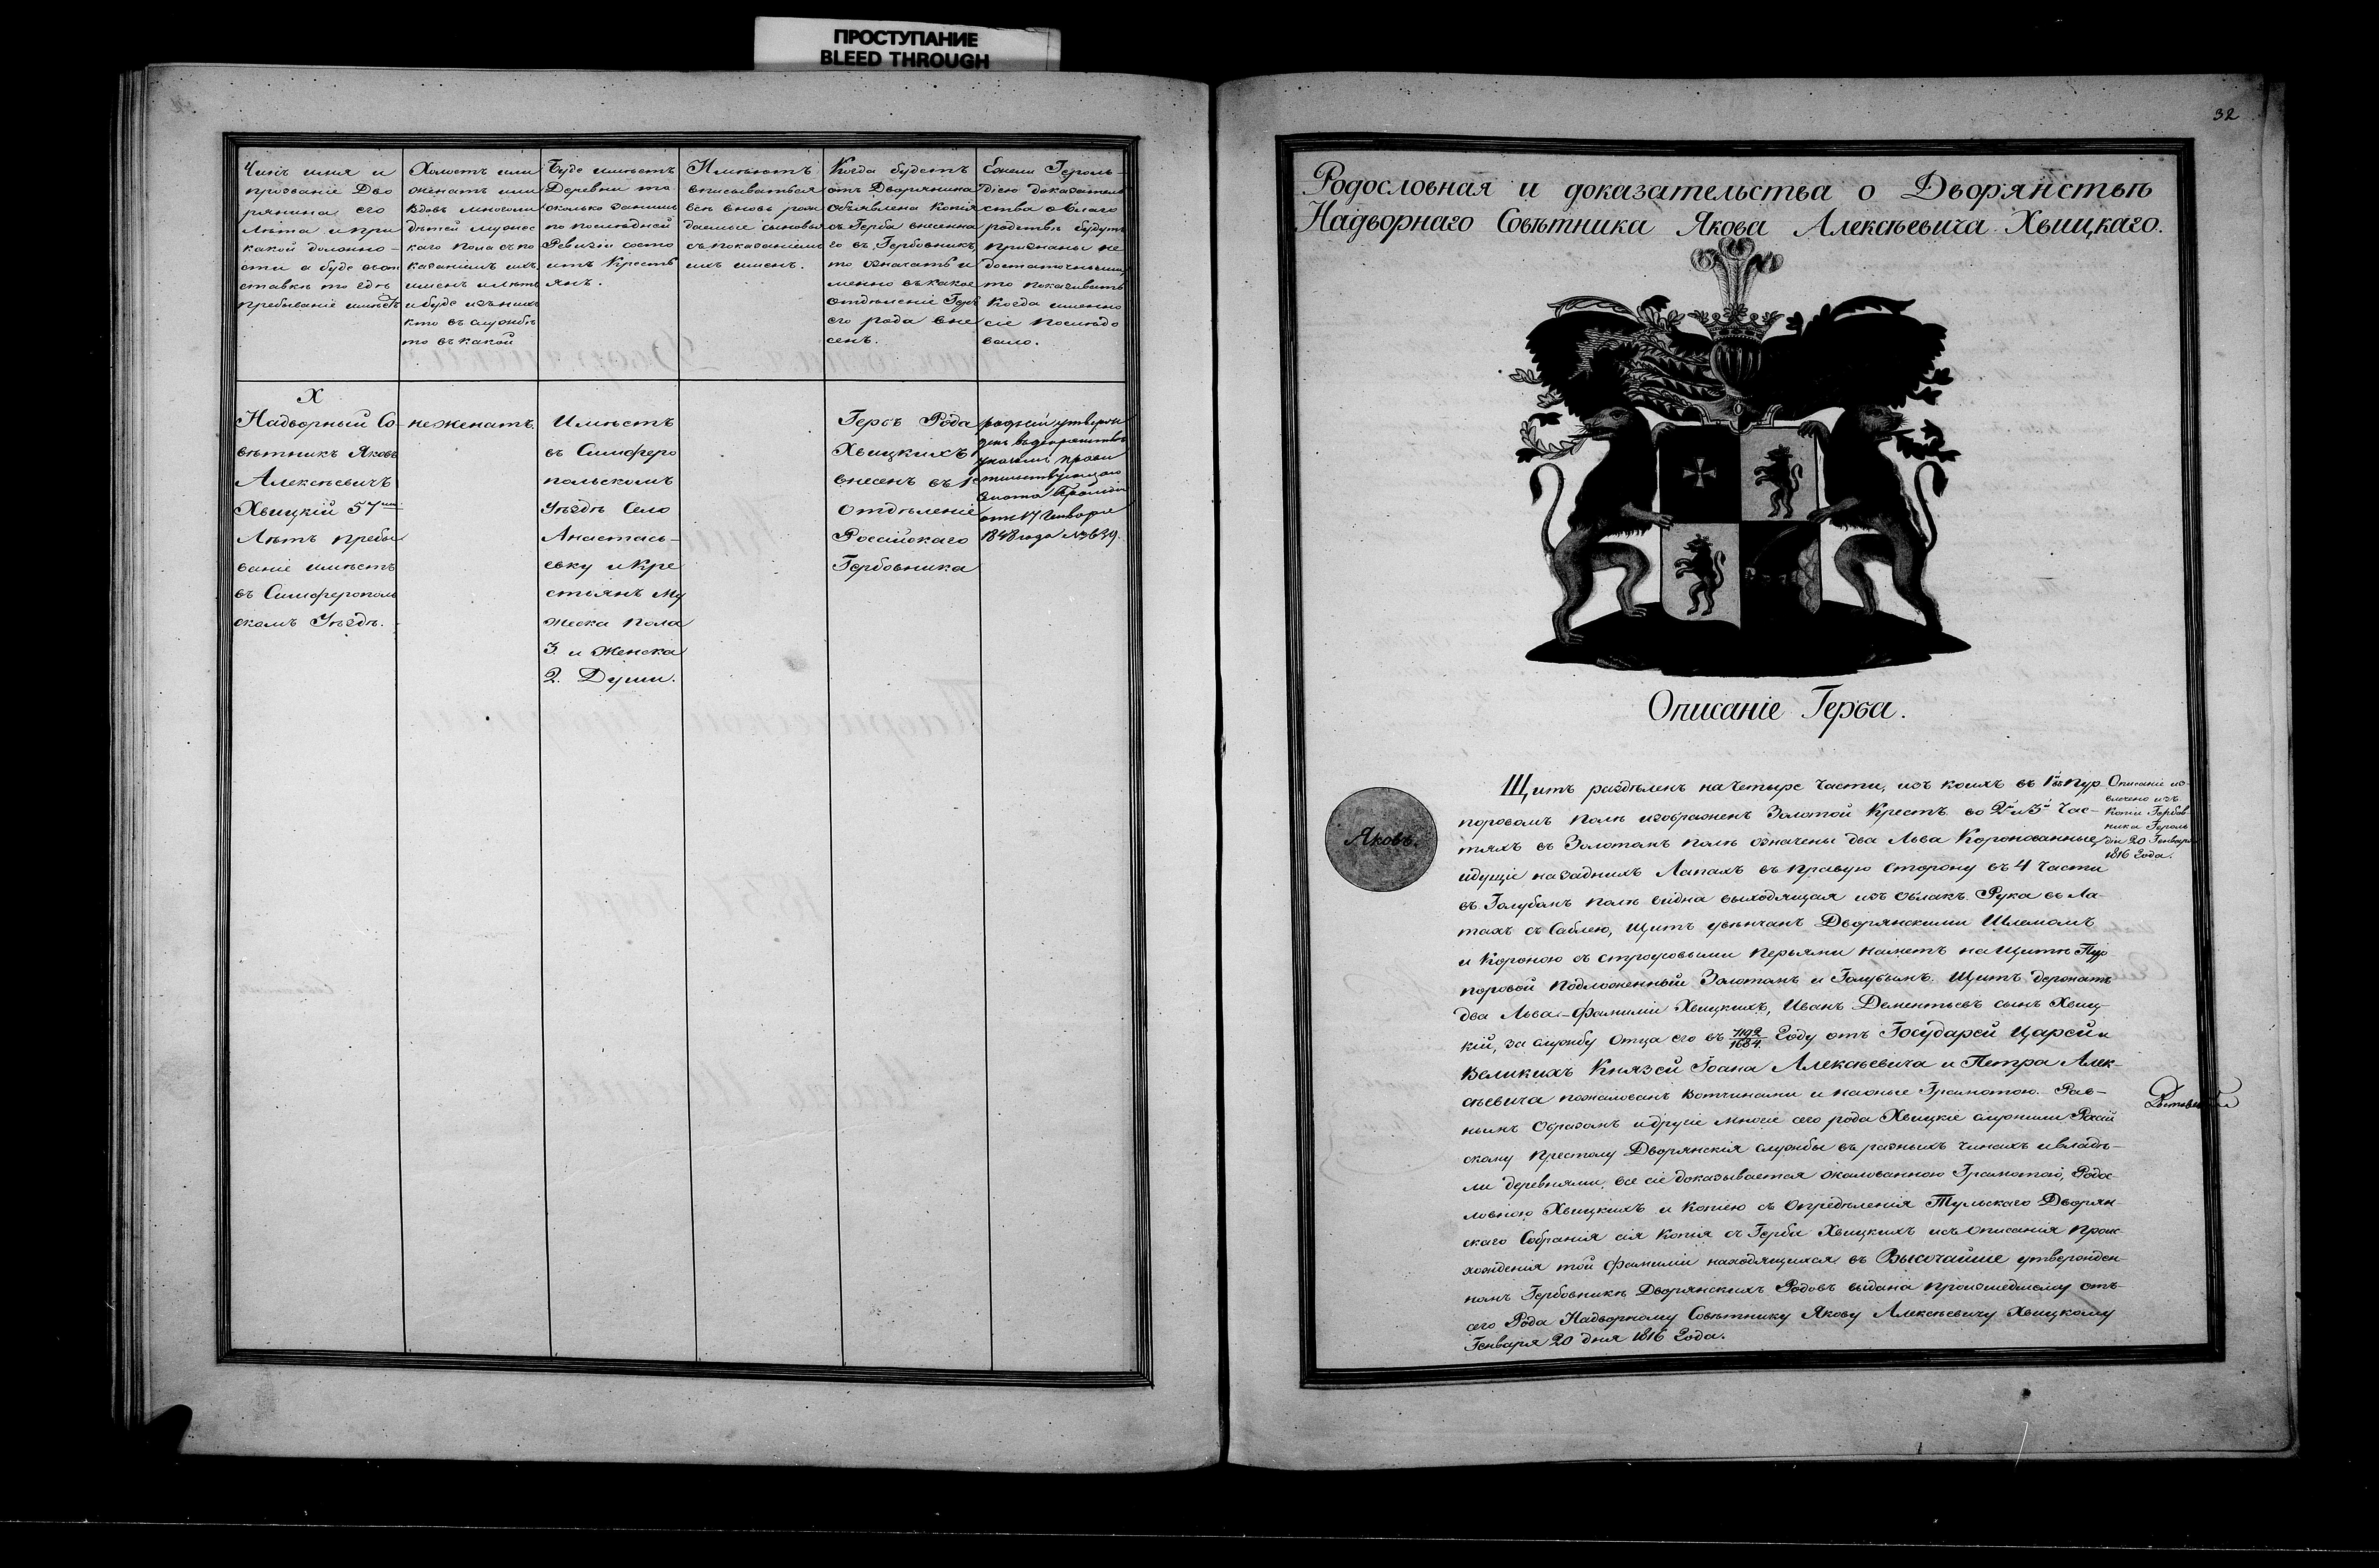 ПРОСТУПАНИЕ
BLEED THROUGH
Чинъ имя и
прозваніе Дво
рянина его
лѣта и при
какой должно-
сти а буде въ от
ставкѣ то гдѣ
пребываніе имѣетъ
Холостъ или
женатъ или
вдовъ многоли
дѣтей мужес
каго пола съ по
казаніемъ ихъ
именъ и лѣтъ
и буде изъ нихъ
кто въ службѣ
то въ какой
Буде имѣетъ
Деревни то
сколько за нимъ
по послѣдней
Ревизіи состо
итъ Кресть
янъ.
Имѣютъ
вписываться
всѣ вновь рож
даемые сыновья
съ показаніемъ
ихъ именъ.
Когда будетъ
отъ Дворянина
объявлена Копія
съ Герба внесенна
го въ Гербовникъ
то означать и
менно въ какое
отдѣленіе Гербъ
его рода вне
сенъ.
Ежели Героль-
діею доказатель
ства о благо
родствѣ будутъ
признаны не
достаточными,
то показывать
Когда именно
сіе послѣдо
вало.
Х
Надворный Со-
вѣтникъ Яковъ
Алексѣевичъ
Хвицкій 57ми
Лѣтъ пребы
ваніе имѣетъ
въ Симферополь
скомъ Уѣздѣ.
не женатъ.
Имѣетъ
въ Симферо
польскомъ
Уѣздѣ Село
Анастась-
евку и Кре
стьянъ Му
жеска пола
3. и Женска
2. Души.
Гербъ Рода
Хвицкихъ
внесенъ въ 1е
Отдѣленіе
Россійскаго
Гербовника
родъ сей утверж
денъ въ дворянствѣ
указомъ прави
тельствующаго
Сената
отъ 17 Генваря
1848 года № 639.
32
Родословная и доказательства о Дворянствѣ
Надворнаго Совѣтника Якова Алексѣевича Хвицкаго.
Описаніе Герба.
Яковъ.
Щитъ раздѣленъ на Четыре Части, изъ коихъ въ 1й въ Пур-
поровомъ полѣ изображенъ Золотой Крестъ. во 2й и 3й Час-
тяхъ въ Золотомъ полѣ означены два Льва Коронованные,
идущіе на заднихъ Лапахъ въ правую сторону въ 4 Части
въ Голубомъ полѣ видна выходящая изъ облакъ Рука въ Ла-
тахъ съ Саблею, щитъ увѣнчанъ Дворянскими Шлемомъ
и Короною съ строусовыми перьями наметъ на щитѣ Пур-
поровой подложенный Золотомъ и Голубымъ. Щитъ держатъ
два Льва - Фамиліи Хвицкихъ, Иванъ Дементьевъ сынъ Хвиц-
кій, за службу Отца его въ 7192/1684. Году отъ Государей Царей и
Великихъ Князей Іоана Алексѣевича и Петра Алек-
сѣевича пожалованъ вотчинами и на оные Грамотою. Рав-
нымъ Образомъ и другіе многіе сего рода Хвицкіе служили Россій
скому Престолу Дворянскія службы въ разныхъ чинахъ и владѣ-
ли деревнями. все сіе доказывается жалованною Грамотою, Родос-
ловною Хвицкихъ и копіею съ опредѣленія Тульскаго Дворян-
скаго Собранія сія копія съ Герба Хвицкихъ изъ описанія Проис-
хожденія той фамиліи находящихся въ Высочайше утвержден-
номъ Гербовникѣ Дворянскихъ Родовъ выдана произшедшему отъ
сего Рода Надворному Совѣтнику Якову Алексѣевичу Хвицкому
Генваря 20 дня 1816 Года.
Описаніе из-
влечено изъ
Копіи Гербов-
ника Героль
діи 20 Генваря
1816 Года.